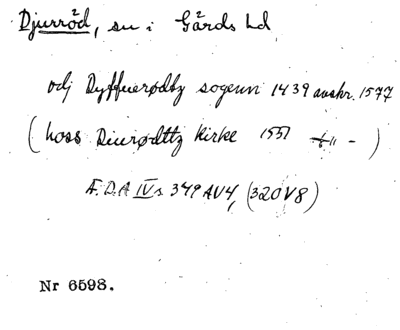 Djurröd, sn i Gärds hd
vdj Dyffuerødby sogenn 1439 avskr. 1577
(hoss Diurødttz kirke 1551 -"- )
Æ.D.A IV s 349 AV4, (320 V8)
Nr 6598.